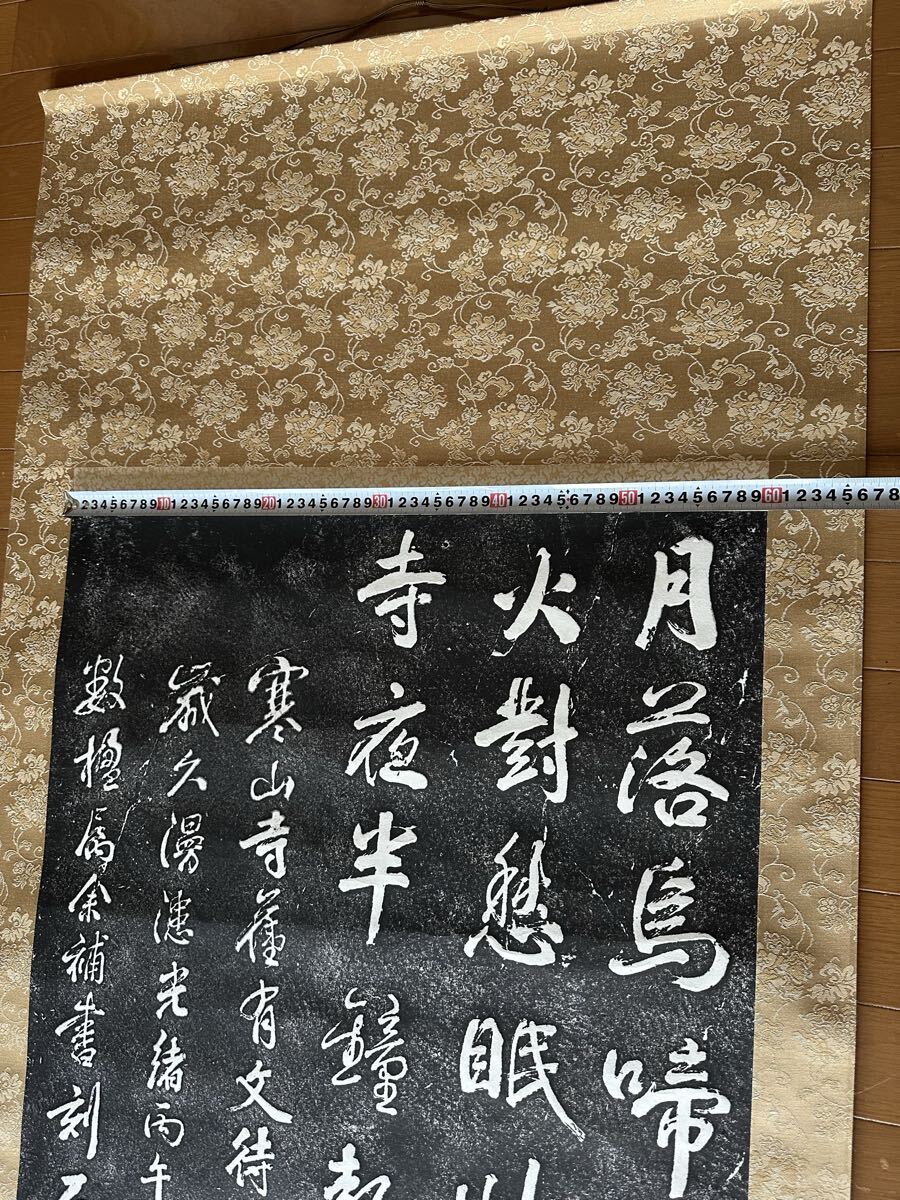 2345678910123456789201234567893012345678940123456789501234567896012345678
月落烏啼
火對愁眠
寺夜半鐘
寒山寺舊有文待
歲久漫漶光緒丙午
數楹屬余補書刻